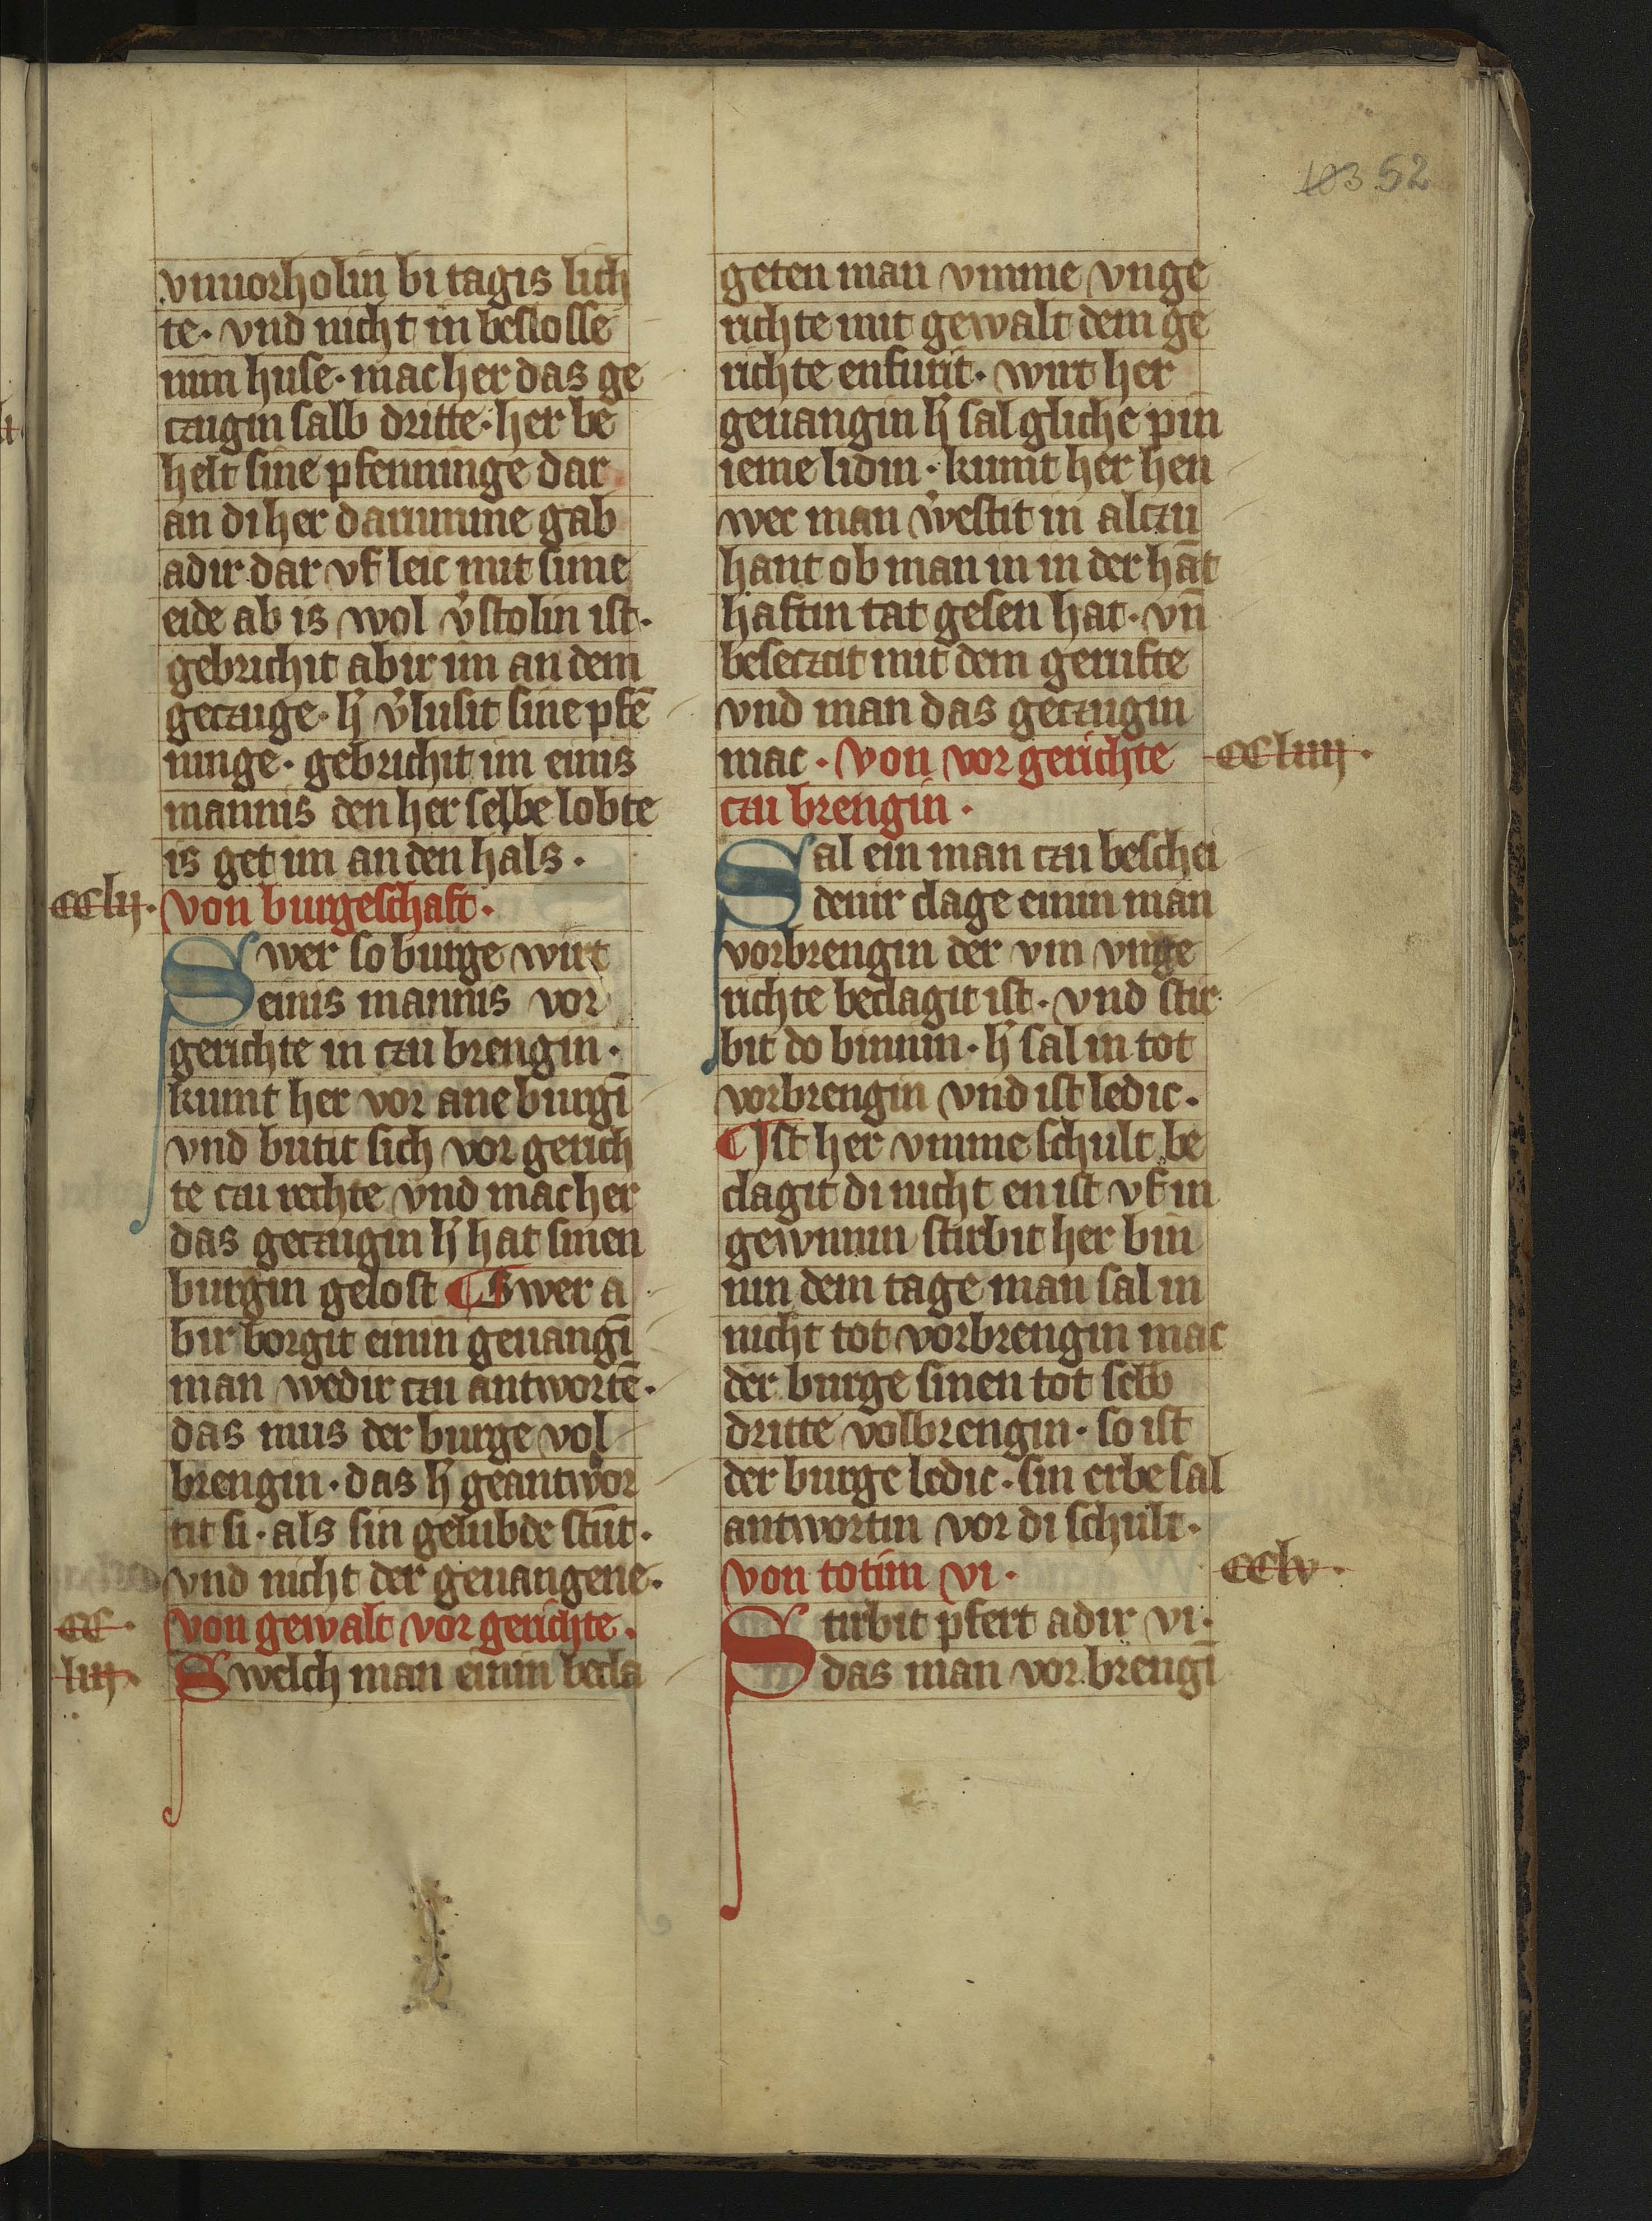 103 52
vnuorholin bi tagis lich
te · vnd nicht in beslosse
nim huse · mac her das ge
czugin salb dritte · her be
helt sine pfenninge dar
an di her darumme gab
adir dar vf leic mit sime
eide ab is wol v͛stolin ist ·
gebrichit abir im an dem
geczuge · h͛ v͛lusit sine pfē
ninge · gebrichit im einis
mannis den her selbe lobte
is get im an den hals ·
cclij · von burgeschaft ·
Swer so burge wirt
einis mannis vor
gerichte in czu brengin ·
kumt her vor ane burgī
vnd butit sich vor gerich
te czu rechte vnd mac her
das geczugin h͛ hat sinen
burgin gelost ¶ Swer a
bir borgit einin geuangī
man wedir czu antwortē ·
das mus der burge vol
brengin · das h͛ geantwor
tit si · als sin gelubde stūt ·
vnd nicht der geuangene ·
cc · von gewalt vor gerichte ·
liij · Swelch man einin becla
geten man vmme vnge
richte mit gewalt dem ge
richte enfurit · wirt her
geuangin h͛ sal gliche pin
ieme lidin · kumt her hen
wec man v͛vestit in alczu
hant ob man in in der hāt
haftin tat gesen hat · vn̄
beseczcit mit dem gerufte
vnd man das geczugin
mac · von vor gerichte ccliiij ·
czu brengin ·
Sal ein man czu beschei
denir clage einin man
vorbrengin der vm vnge
richte beclagit ist · vnd stir
bit do binnin · h͛ sal in tot
vorbrengin vnd ist ledic ·
¶ Ist her vmme schult be
clagit di nicht en ist vf in
gewnnin stirbit her bin
nin dem tage man sal in
nicht tot vorbrengin mac
der burge sinen tot selb
dritte volbrengin · so ist
der burge ledic · sin erbe sal
antwortin vor di schult ·
von totim vi · cclv ·
Stirbit pfert adir vi ·
das man vor brengī